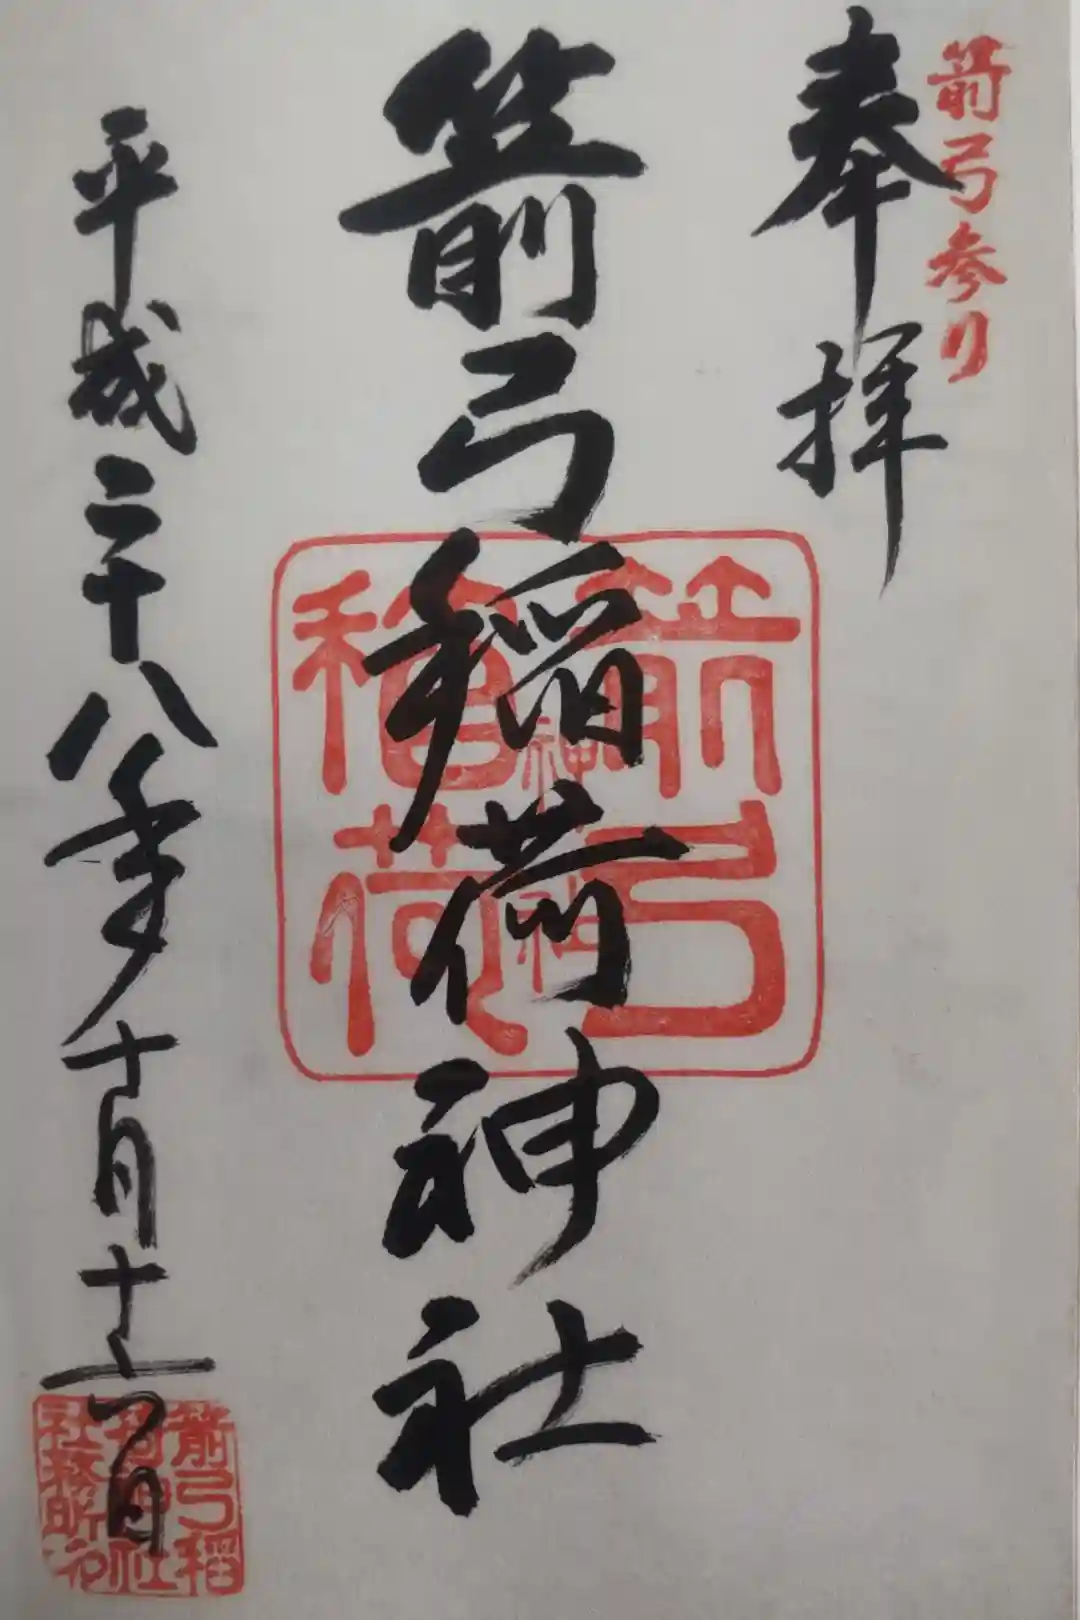 箭弓参り
奉拝
箭弓稲荷神社
箭弓
稲荷
神社
平成二十八年十月十二日
箭弓稲
荷神社
社務所印